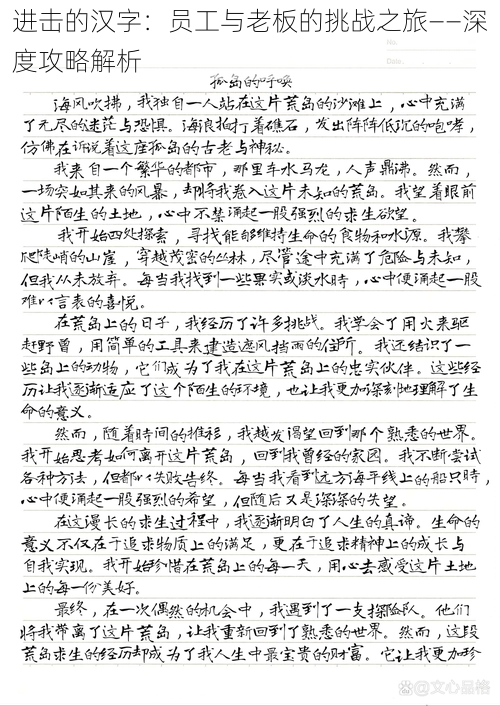 进击的汉字：员工与老板的挑战之旅——深
度攻略解析
No.
Date.
孤岛的呼唤
海风吹拂，我独自一人站在这片荒岛的沙滩上，心中充满
了无尽的迷茫与恐惧。海浪拍打着礁石，发出阵阵低沉的咆哮，
仿佛在诉说着这座孤岛的古老与神秘。
我来自一个繁华的都市，那里车水马龙，人声鼎沸。然而，
一场突如其来的风暴，却将我卷入这片未知的荒岛。我望着眼前
这片陌生的土地，心中不禁涌起一股强烈的求生欲望。
我开始四处探索，寻找能够维持生命的食物和水源。我攀
爬陡峭的山崖，穿越茂密的丛林，尽管途中充满了危险与未知，
但我从未放弃。每当我找到一些果实或淡水时，心中便涌起一股
难以言表的喜悦。
在荒岛上的日子，我经历了许多挑战。我学会了用火来驱
赶野兽，用简单的工具来建造遮风挡雨的住所。我还结识了一
些岛上的动物，它们成为了我在这片荒岛上的忠实伙伴。这些经
历让我逐渐适应了这个陌生的环境，也让我更加深刻地理解了生
命的意义。
然而，随着时间的推移，我越发渴望回到那个熟悉的世界。
我开始思考如何离开这片荒岛，回到我曾经的家园。我不断尝试
各种方法，但都以失败告终。每当我看到远方海平线上的船只时，
心中便涌起一股强烈的希望，但随后又是深深的失望。
在这漫长的求生过程中，我逐渐明白了人生的真谛。生命的
意义不仅在于追求物质上的满足，更在于追求精神上的成长与
自我实现。我开始珍惜在荒岛上的每一天，用心去感受这片土地
上的每一份美好。
最终，在一次偶然的机会中，我遇到了一支探险队。他们
将我带离了这片荒岛，让我重新回到了熟悉的世界。然而，这段
荒岛求生的经历却成为了我人生中最宝贵的财富。它让我更加珍
@文心品格